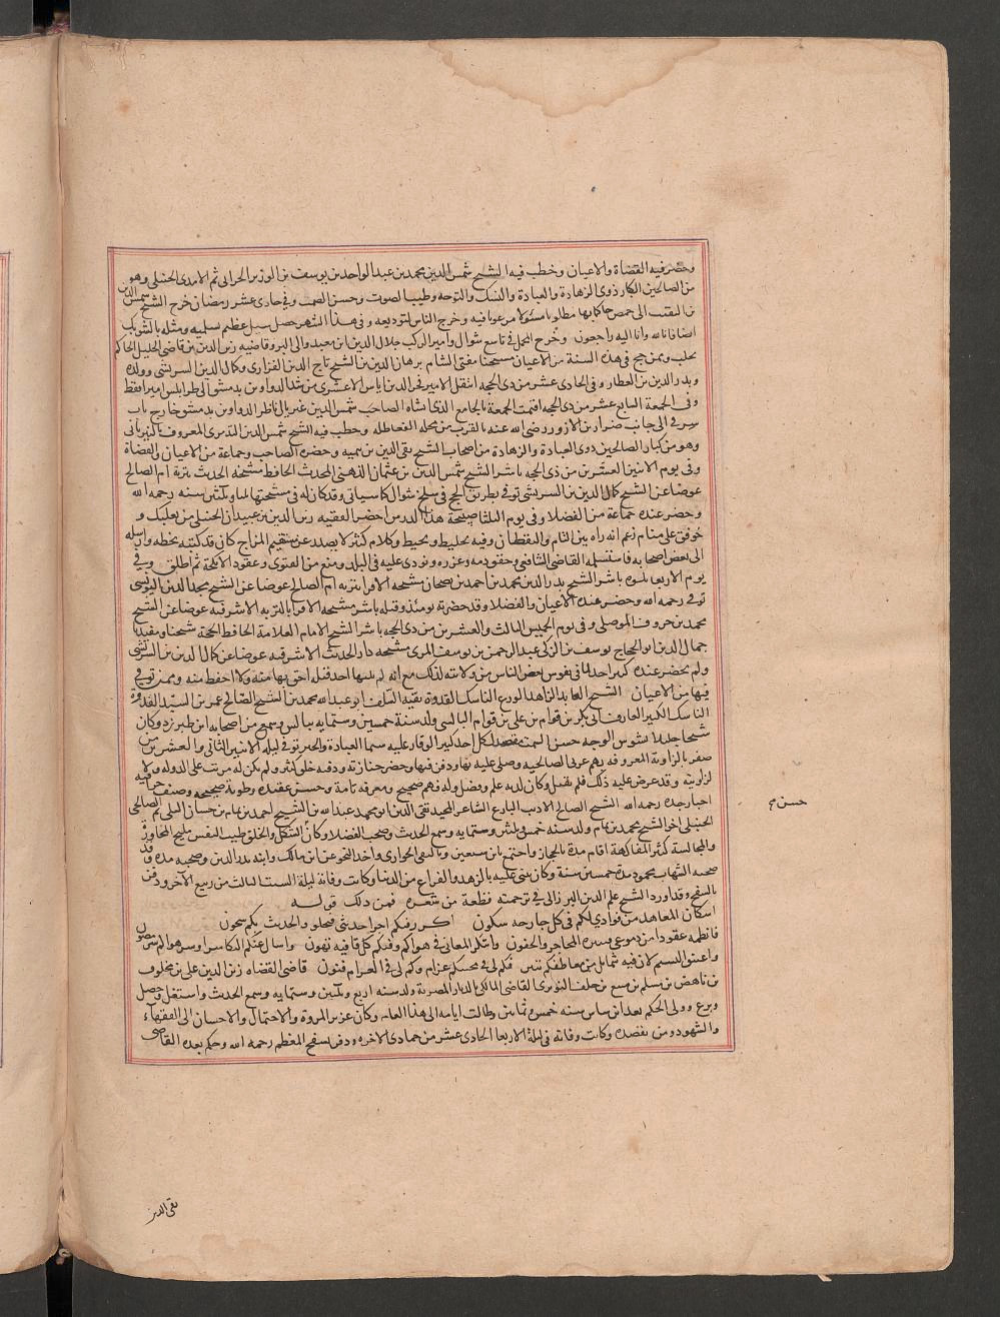 وحضر فيه القضاة والاعيان وخطب فيه الشيخ شمس الدين محمد بن عبد الواحد بن يوسف بن الوزير الحراني ثم الامدي الحنبلي وهو
من الصالحين الكبار ذوي الزهادة والعبادة والنسك والتوجه وطيب الصوت وحسن السمت وفي حادي عشر رمضان خرج الشيخ شمس الدين
بن النقيب الى حمص حاكما بها مطلوبا مسئولا مرغوبا فيه وخرج الناس لتوديعه وفي هذا الشهر حصل سيل عظيم بسلمية ومثله بالشوبك
ايضا فانا لله وانا اليه راجعون وخرج المحمل في تاسع شوال وامير الركب جلال الدين ابن معبد والي البر وقاضيه زين الدين بن قاضي الخليل الحاكم
بحلب وممن حج في هذه السنة من الاعيان شيخنا مفتي الشام برهان الدين بن الشيخ تاج الدين الفزاري وكمال الدين الشريشي وولده
وبدر الدين بن العطار وفي الحادي عشر من ذي الحجه انتقل الامير فخر الدين اياس الاعسري من شد الدواوين بدمشق الى طرابلس اميرا فقط
وفي الجمعة السابع عشر من ذي الحجه اقيمت الجمعة بالجامع الذي انشاه الصاحب شمس الدين غبريال ناظر الدواوين بدمشق خارج باب
شرقي الى جانب ضرار بن الازور رضي الله عنه بالقرب من محلة القعاطلة وخطب فيه الشيخ شمس الدين التدمري المعروف بالنيرباني
وهو من كبار الصالحين ذوي العبادة والزهادة من اصحاب الشيخ تقي الدين بن تيميه وحضره الصاحب وجماعة من الاعيان والقضاة
وفي يوم الاثنين العشرين من ذي الحجه باشر الشيخ شمس الدين بن عثمان الذهبي المحدث الحافظ مشيخة الحديث بتربة ام الصالح
عوضا عن الشيخ كمال الدين بن الشريشي توفي بطريق الحج في سلخ شوال كما سياتي وقد كان له في مشيختها ثلثا وثلثين سنه رحمه الله
وحضر عنده جماعة من الفضلا وفي يوم الثلثا صبيحة هذا الدرس احضر الفقيه زين الدين بن عبيدان الحنبلي من بعلبك و
حوقق على منام زعم انه راه بين النائم واليقظان وفيه تخليط وتخبيط وكلام كثير لا يصدر عن مستقيم المزاج كان قد كتبه بخطه وارسله
الى بعض اصحابه فاستسلمه القاضي الشافعي وحقن دمه وعزره ونودي عليه في البلد ومنع من الفتوى وعقود الانكحة ثم اطلق وفي
يوم الاربعا بكرة باشر الشيخ بدر الدين محمد بن احمد بن بصحان مشيخة الاقرا بتربه ام الصالح عوضا عن الشيخ مجد الدين التونسي
توفي رحمه الله وحضر عنده الاعيان والفضلا وقد حضرته يومئذ وقبله باشر مشيخة الاقرا بالتربه الاشرفيه عوضا عن الشيخ
محمد بن خروف الموصلي وفي يوم الخميس الثالث والعشرين من ذي الحجه باشر الشيخ الامام العلامة الحافظ الحجة شيخنا ومفيدنا
جمال الدين ابو الحجاج يوسف بن الزكي عبد الرحمن بن يوسف المزي مشيخة دار الحديث الاشرفيه عوضا عن كمال الدين بن الشريشي
ولم يحضر عنده كبير احد لما في نفوس بعض الناس من ولايته لذلك مع انه لم يلها احد قبله احق بها منه ولا احفظ منه وممن توفي
فيها من الاعيان الشيخ العابد الزاهد الورع الناسك القدوة بقية السلف ابو عبد الله محمد بن الشيخ الصالح عمر بن السيد القدوة
الناسك الكبير العارف ابي بكر بن قوام بن علي بن قوام البالسي ولد سنة خمسين وستمايه ببالس وسمع من اصحاب ابن طبرزد وكان
شيخا جليلا بشوش الوجه حسن السمت مقصدا لكل احد كبير الوقار عليه سيما العبادة والخير توفي ليلة الاثنين الثاني والعشرين من
صفر بالزاوية المعروفه بهم غربي الصالحيه وصلي عليه بها ودفن فيها وحضر جنازته ودفنه خلق كثير ولم يكن له مرتب على الدوله ولا
لزاويته وقد عرض عليه ذلك فلم يقبل وكان لديه علم وفضل وله فهم صحيح ومعرفه تامة وحسن عقيده وطوية صحيحه وصنف جزءا فيه
اخبار جده رحمه الله الشيخ الصالح الاديب البارع الشاعر المجيد تقي الدين ابو محمد عبد الله بن الشيخ احمد بن تمام بن حسان التلي ثم الصالحي
الحنبلي اخو الشيخ محمد بن تمام ولد سنه خمس وثلثين وستمايه وسمع الحديث وصحب الفضلا وكان حسن الشكل والخلق طيب النفس مليح المحاورة
والمجالسة كثير المفاكهة اقام مدة بالحجاز واجتمع بابن سبعين وبالتقي الحوراني واخذ النحو عن ابن مالك وابنه بدر الدين وصحبه مده وقد
صحبه الشهاب محمود مدة خمسين سنة وكان يثني عليه بالزهد والفراغ من الدنيا وكانت وفاته ليلة السبت الثالث من ربيع الآخر ودفن
بالسفح وقد اورد الشيخ علم الدين البرزالي في ترجمته قطعة من شعره فمن ذلك قوله
اسكان المعاهد من فوادي لكم في كل جارحه سكون اكرر فيكم ابدا حديثي فيحلو والحديث بكم شجون
فانظمه عقودا من دموعي فتنثره المحاجر والجفون وابتكر المعاني في هواكم وفيكم كل قافيه تهون واسال عنكم البكا سرا وسر هواكم سر مصون
واعتنق النسيم لان فيه شمائل من معاطفكم تبين فكم لي في محبتكم غرام وكم لي في الغرام فنون قاضي القضاه زين الدين علي بن مخلوف
بن ناهض بن مسلم بن منعم بن خلف النويري القاضي المالكي بالديار المصرية ولد سنه اربع وثلثين وستمايه وسمع الحديث واستغل وحصل
وبرع وولي الحكم بعد ابن شاس سنه خمس وثمانين وطالت ايامه الى هذا العام وكان غزير المروة والاحتمال والاحسان الى الفقهاء
والشهود ومن يقصده وكانت وفاته في ليلة الاربعا الحادي عشر من جمادي الاخره ودفن بسفح المقطم رحمه الله وحكم بعده القاضي
حسن
تقي الدين